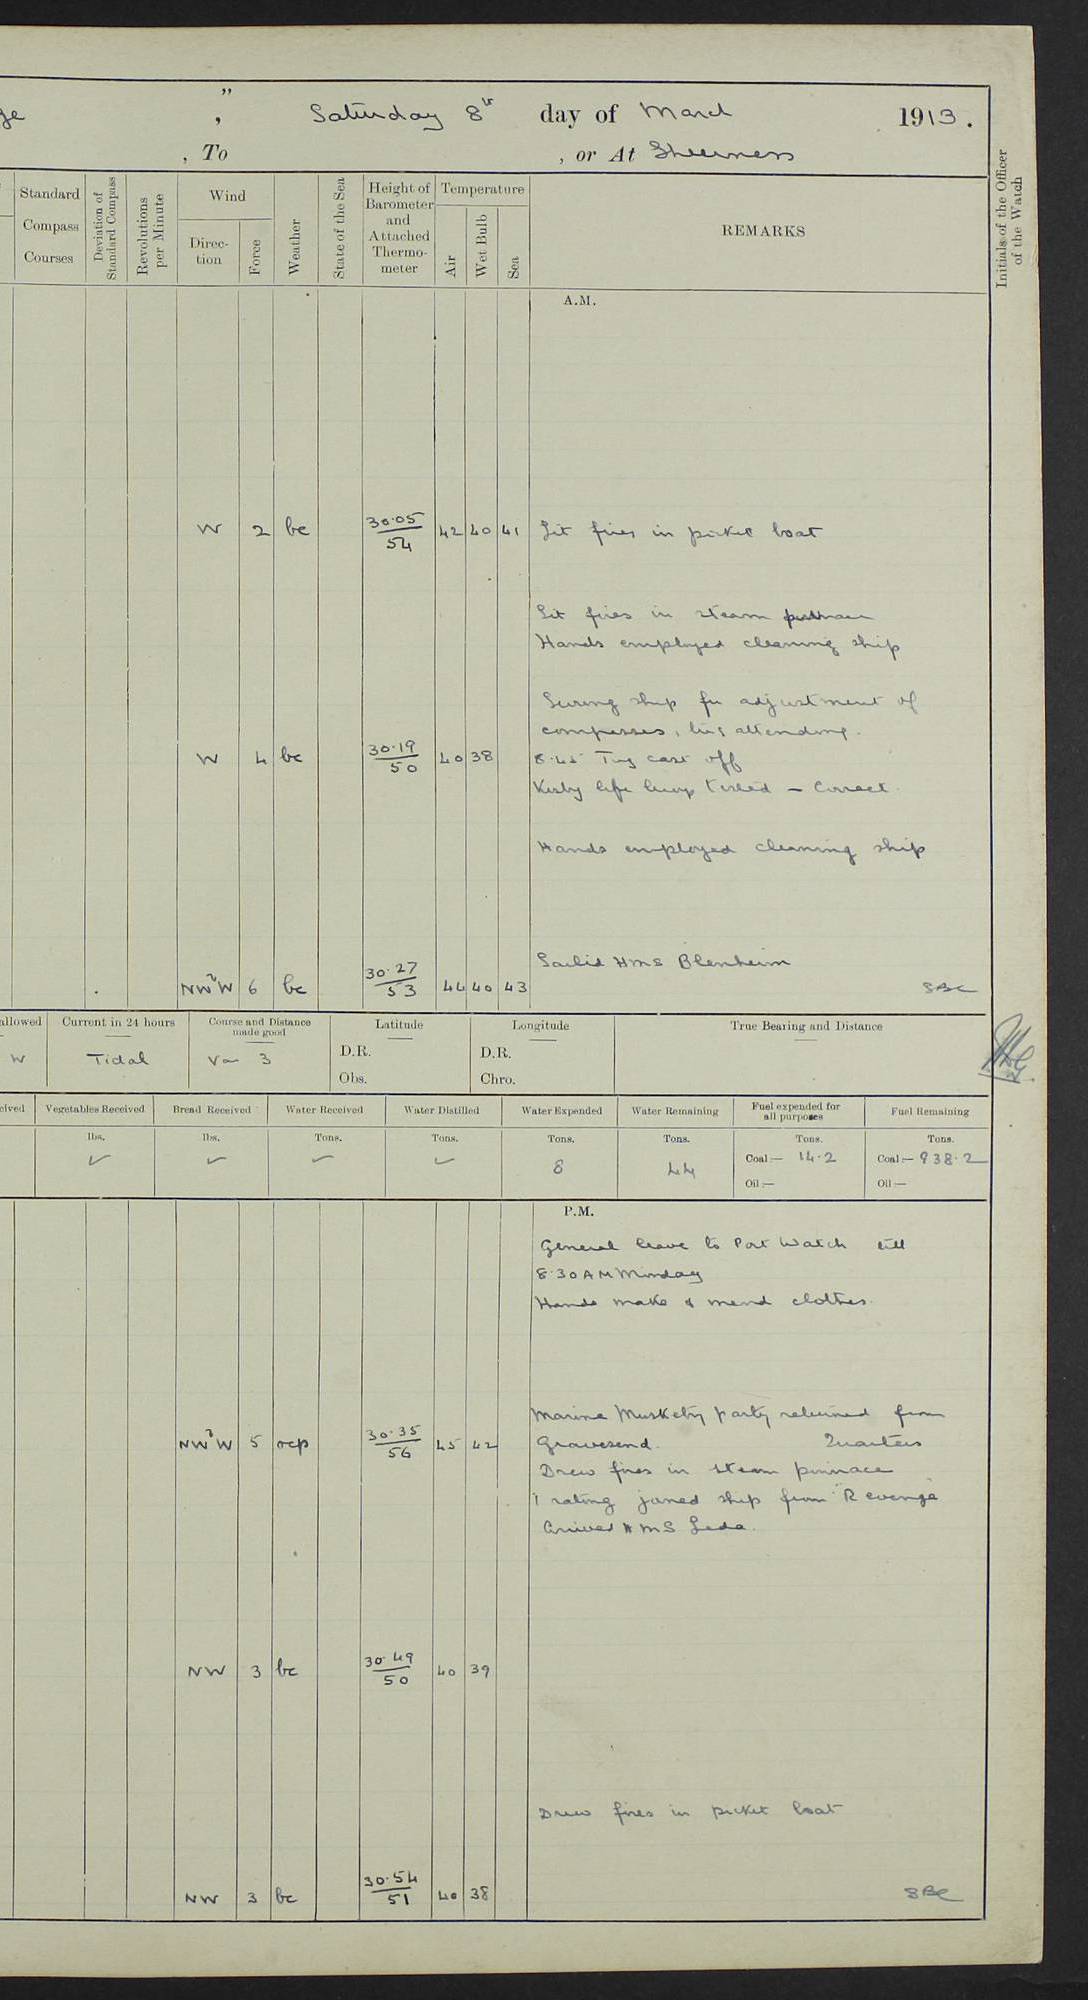 "
, Saturday 8th day of March 1913.
, To , or At Sheerness
Standard Compass Courses
Deviation of Standard Compass
Revolutions per Minute
Wind
Direction
Force
Weather
State of the Sea
Height of Barometer and Attached Thermometer
Temperature
Air
Wet Bulb
Sea
REMARKS
Initials of the Officer of the Watch
A.M.
W 2 bc 30.05/54 42 40 41 Lit fires in picket boat
Lit fires in steam pinnace
Hands employed cleaning ship
Swung ship for adjustment of
compasses, attending.
W 4 bc 30.19/50 40 38 8.45 Tug cast off
Kisby life buoy tested – Correct.
Hands employed cleaning ship
Sailed HMS Blenheim
NW W 6 bc 30.27/53 44 40 43 SBC
allowed Current in 24 hours Course and Distance made good Latitude Longitude True Bearing and Distance
W Tidal Var 3 D.R. D.R.
Obs. Chro.
ceived Vegetables Received Bread Received Water Received Water Distilled Water Expended Water Remaining Fuel expended for all purposes Fuel Remaining
lbs. lbs. Tons. Tons. Tons. Tons. Tons. Tons.
✓ ✓ ✓ ✓ 8 44 Coal:— 14.2 Coal:— 938.2
Oil:— Oil:—
P.M.
General leave to Port Watch till
8.30 AM Monday
Hands make & mend clothes.
Marine Musketry party returned from
NW W 5 ocp 30.35/56 45 42 Gravesend. Quarters
Drew fires in steam pinnace
1 rating joined ship from "Revenge"
Arrived HMS Leda.
NW 3 bc 30.49/50 40 39
Drew fires in picket boat
NW 3 bc 30.54/51 40 38 SBC